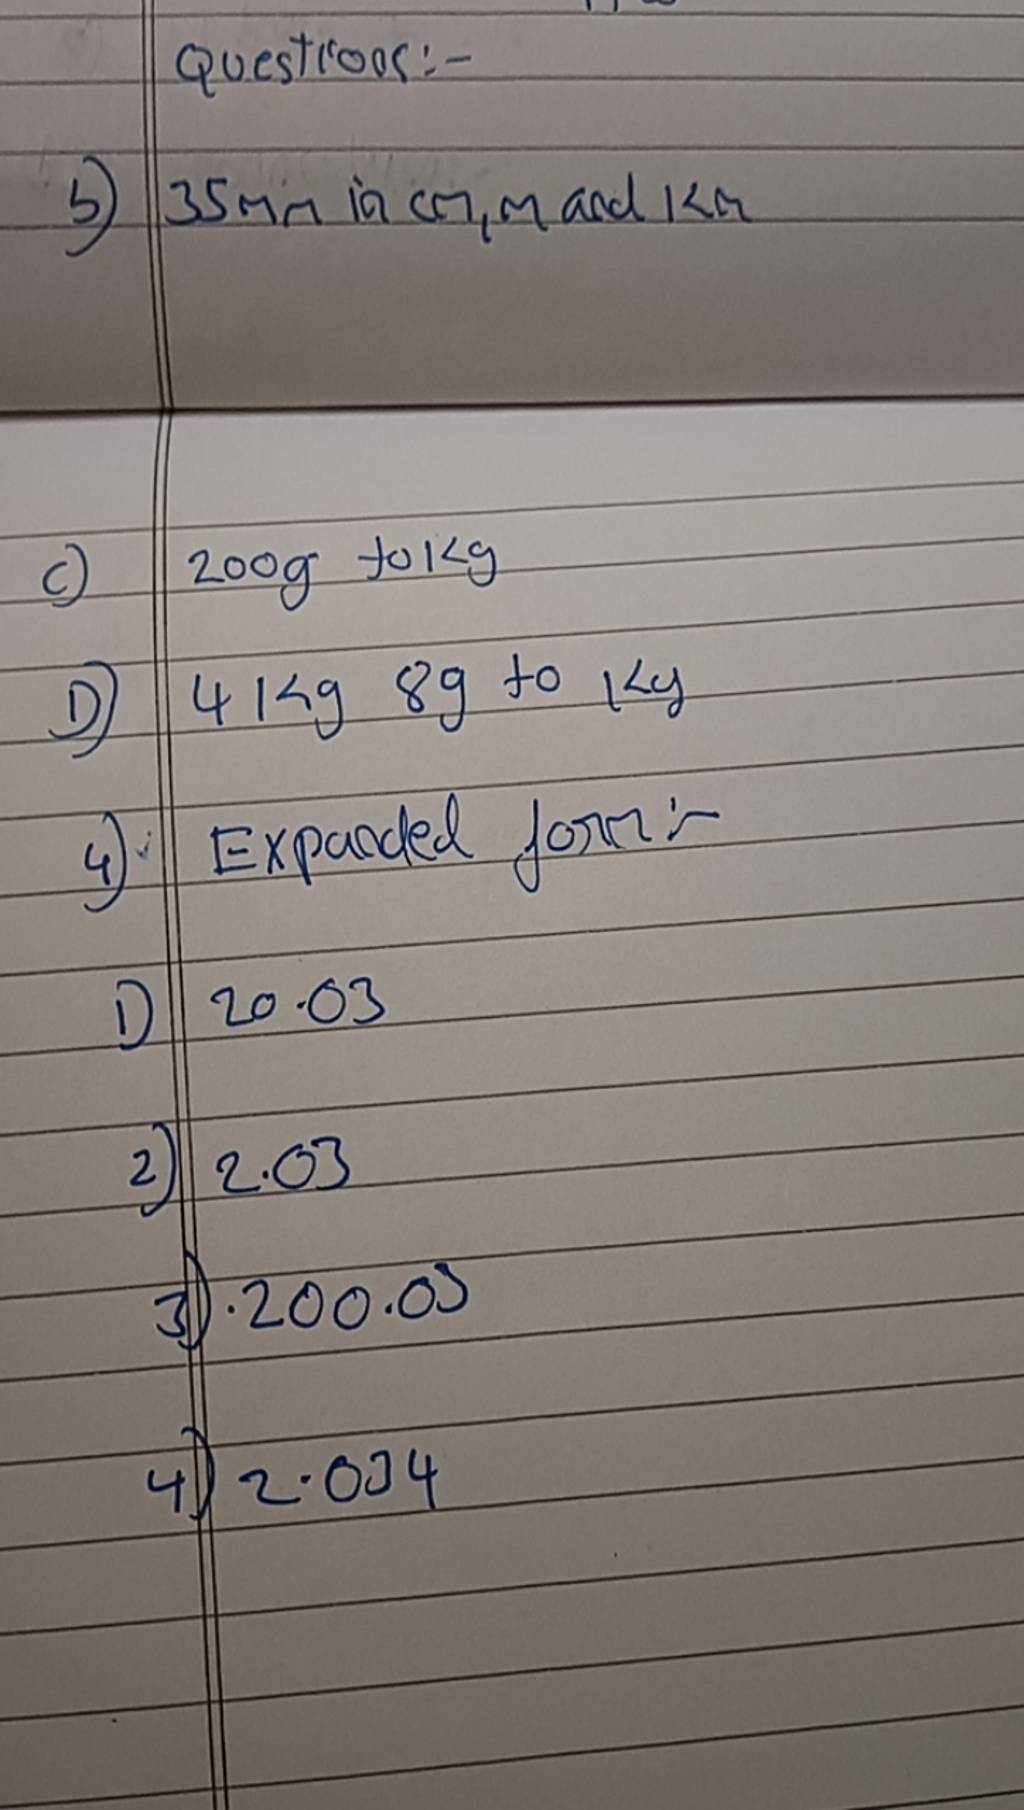 Questions:-
b) 35mm in cm, m and Km
c) 200g to Kg
D) 4 Kg 8g to Kg
4) Expanded form:-
1) 20.03
2) 2.03
3) .200.03
4) 2.034